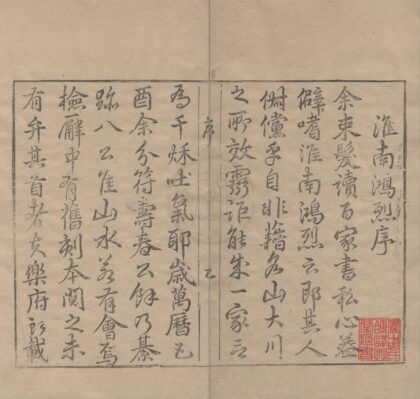 淮南鴻烈序
余束髮讀百家書私心葢
癖嗜淮南鴻烈云即其人
倜儻乎自非藉名山大川
之所效靈詎能米一家言
為千秌吐氣耶歲萬曆乙
酉余分符壽春公餘乃綦
跡八公淮山水若有會焉
檢廨中有舊刻本閱之未
有弁其首者夫樂府所載
序
乙